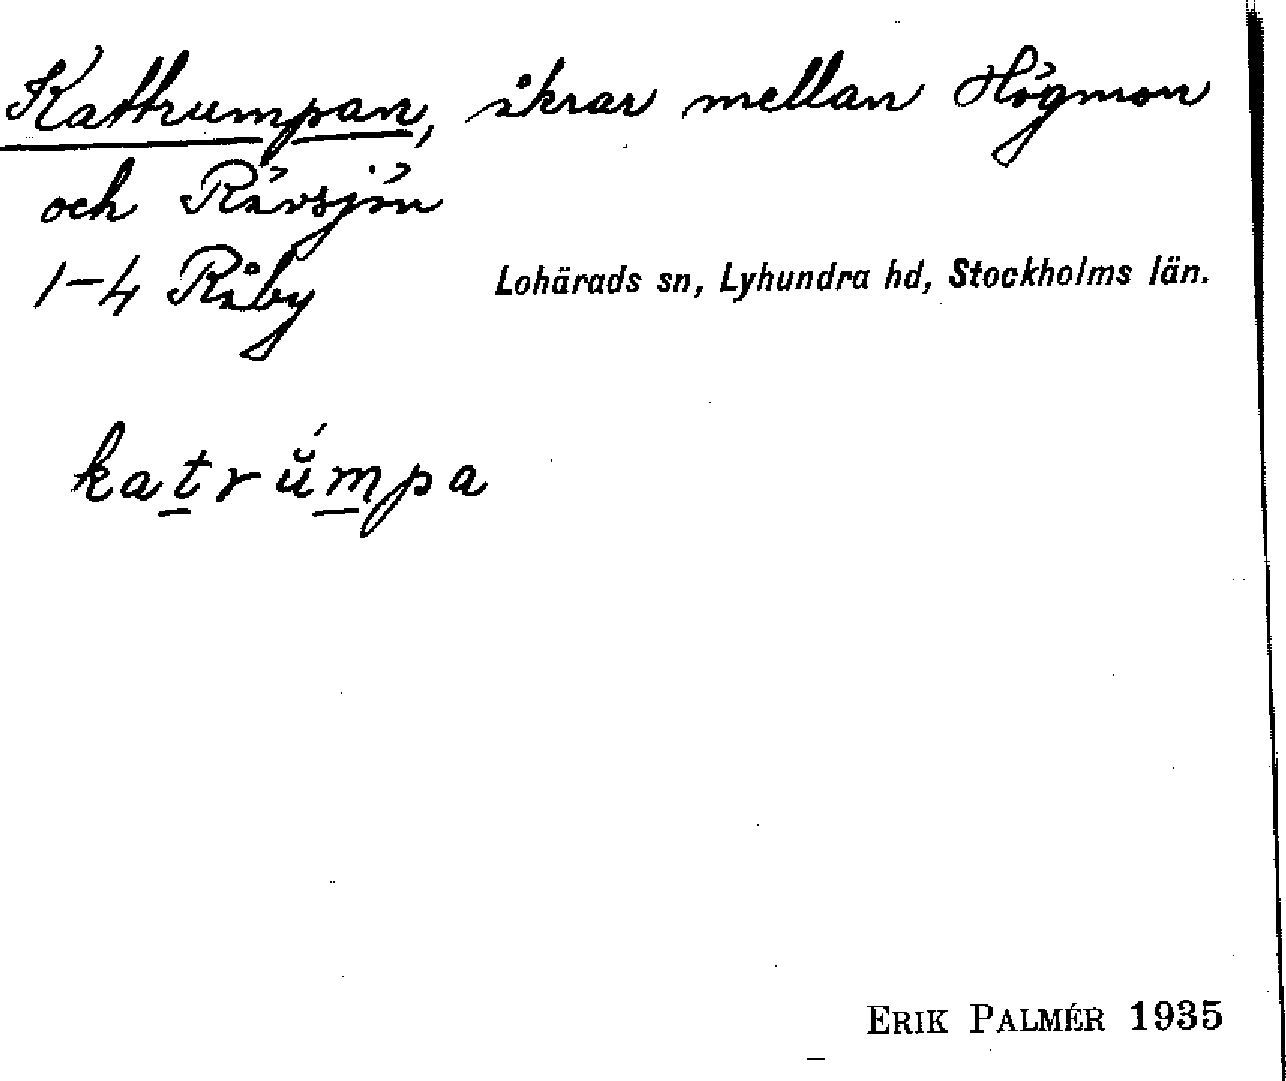 Kattrumpan, åkrar mellan Högmon
och Rävsjön
1-4 Råby Lohärads sn, Lyhundra hd, Stockholms län.
katrŭ́mpa
ERIK PALMÉR 1935